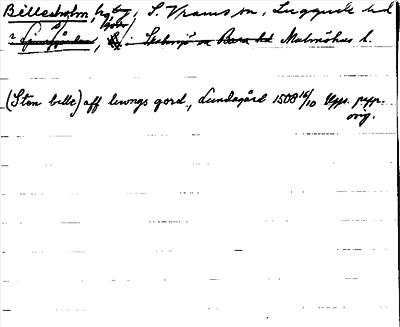 Billesholm, hg, by, S. Vrams sn, Luggude hd
Malmöhus l.
(Sten bille) aff lwngs gord, Lundagård 1508 16/10 Upps. papp.
orig.